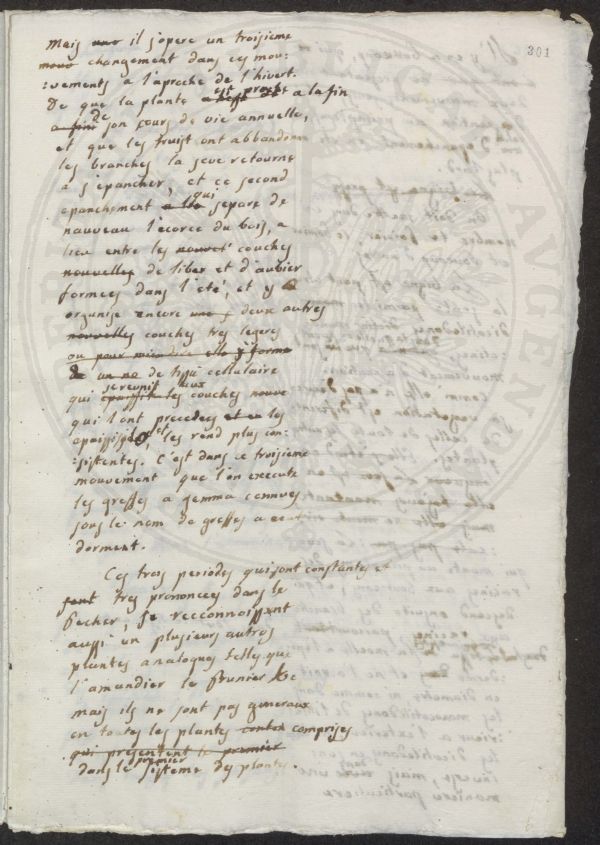 301
Mais uno il s'opere un troisieme
mouv changement dans ces mou:
:vements a l'aproche de l'hivert.
De que la plante est proche a la fin
a fin de son cours de vie annuelle,
et que les fruist ont abbandonne
les branches la seve retourne
a s'epancher, et ce second
epanchement qui separe de
nauveau l'ecorce du bois, a
lieu entre les nouvel couches
nouvelles de liber et d'aubier
formees dans l'eté, et y
organise encore une deux autres
nouvelles couches tres legeres
ou pour mieu dire elle y forme
de un no de tissu cellulaire
qui se reunit aux couches nouve
qui l'ont precedees et en les
apaissisent, les rend plus con:
:sistentes. C'est dans ce troisieme
mouvement que l'on execute
les greffes a gemma connues
sous le nom de greffes a oeuil
dorment.
Ces trois periodes qui sont constantes et
sont tres prononcees dans le
Pecher, se recconnoissent
aussi en plusieurs autres
plantes analogues telles que
l'amandier le Prunier &c
mais ils ne sont pas generaux
en toutes les plantes comprises
qui presentent le premier
dans le premier sisteme des plantes.